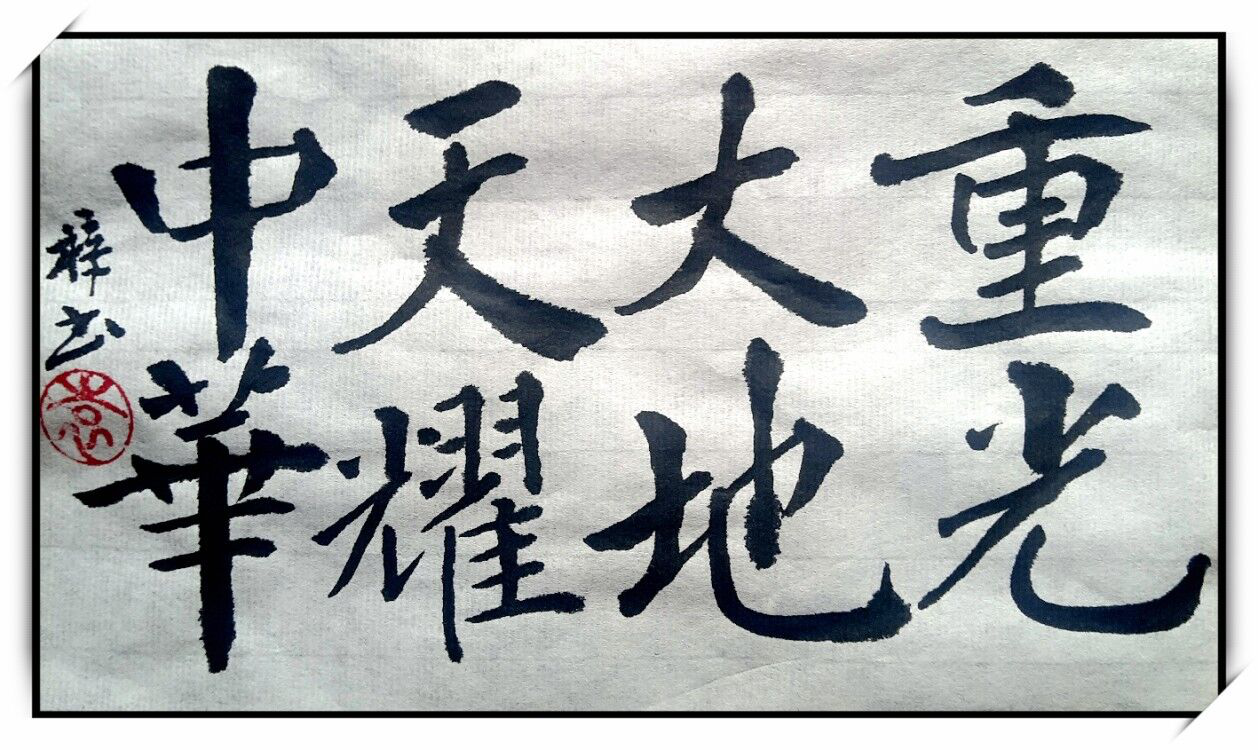 重光
大地
天耀
中華
梓书